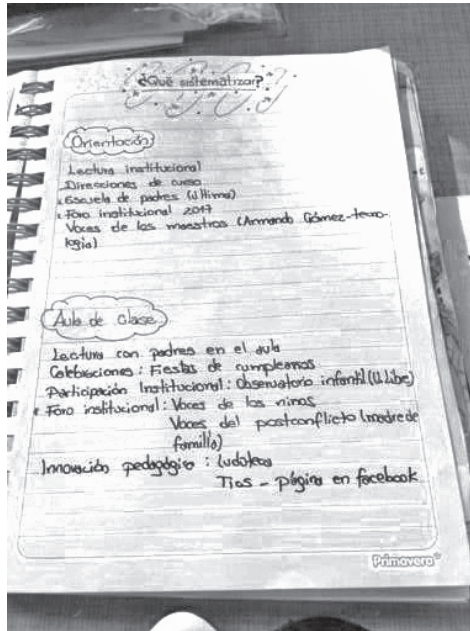 ¿Qué sistematizar?
Orientación
Lectura institucional
Direcciones de curso
Escuela de padres (última)
Foro institucional 2017
Voces de los maestros (Armando Gómez-tecno-
logía)
Aula de clase
Lectura con padres en el aula
Celebraciones: Fiestas de cumpleaños
Participación Institucional: Observatorio infantil (U. Libe)
Foro institucional: Voces de los niños
Voces del postconflicto (madre de
familia)
Innovación pedagógica: Ludoteca
Tics - página en facebook
Primavera